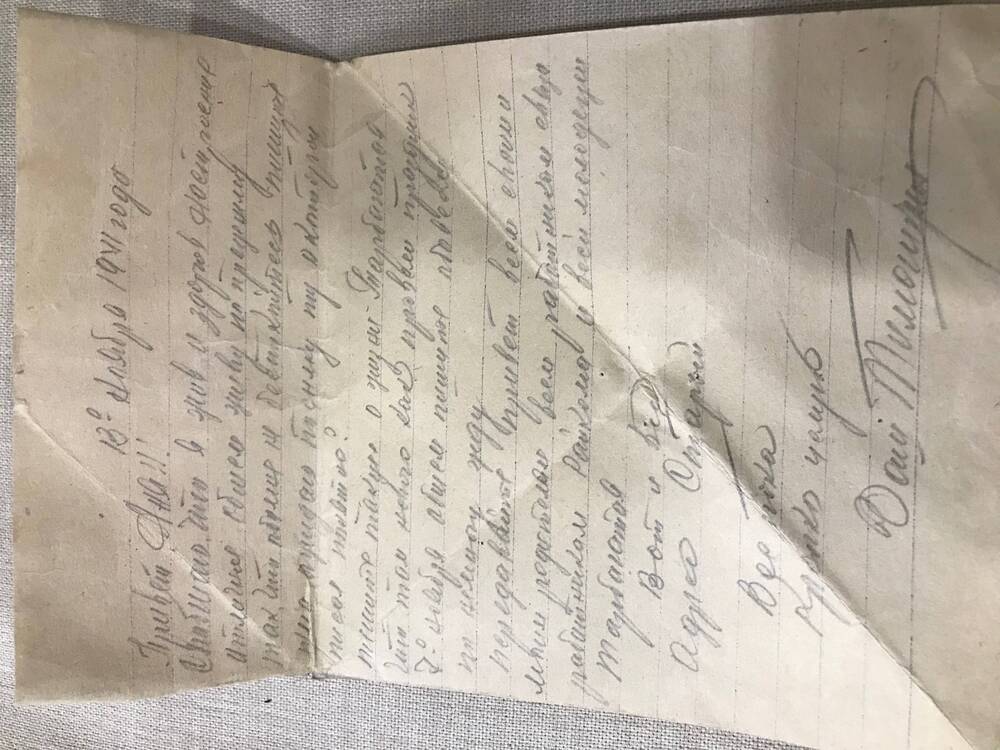 13º Ноября 1941 года
Привет Аня!!
Сообщаю, что я жив и здоров настроение
отличное вбщем живу по прежнему
так что обомне не беспокойтесь пишите
посылку ту о которой
писал
пишите также о жизни Тарбагатая
что там нового как провели праздник
7º ноября вбщем пишите обовсем
по немногу жду
передавайте привет всем своим и
моим родителям всем работникам связи
работникам Райкома и всей молодежи
Тарбагатая
Вот и все
Адрес Старый
Все пока
Крепко целую
Ваш